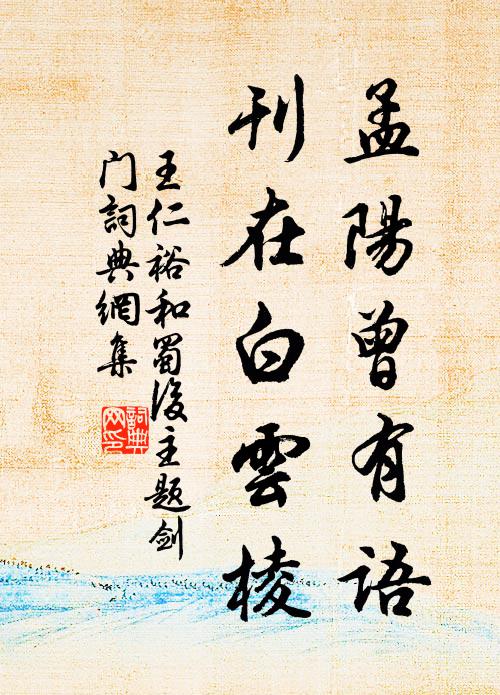 孟陽曾有語
刊在白雲棱
王仁裕和蜀後主題劍
门詞典網集
詞典
网印